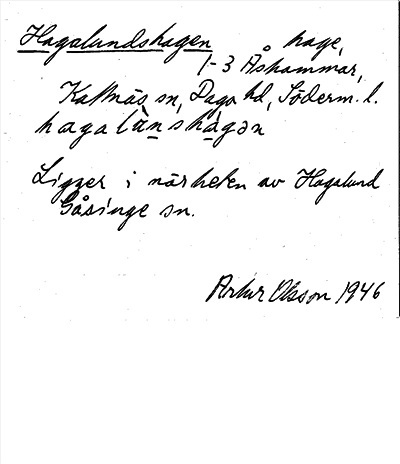 Hagalundshagen hage,
1-3 Åshammar,
Kattnäs sn, Daga hd, Söderm. l.
hagalànshágən
Ligger i närheten av Hagalund
Gåsinge sn.
Artur Olsson 1946